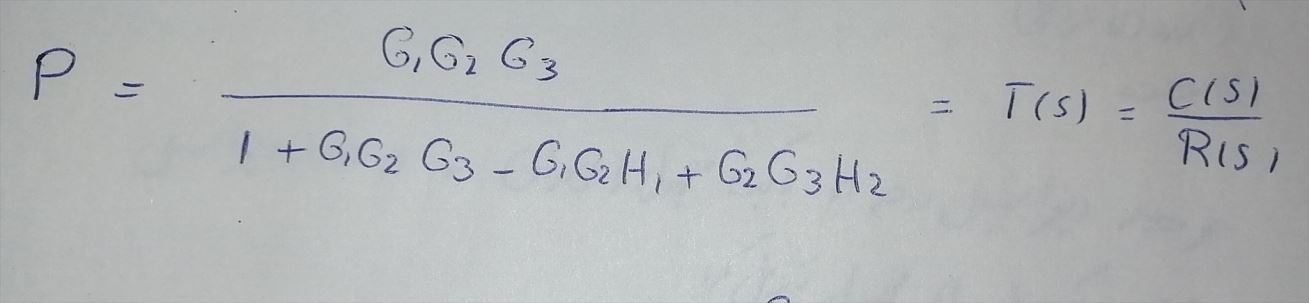 P = G₁G₂ G₃ / 1 + G₁G₂ G₃ - G₁G₂H₁ + G₂G₃H₂ = T(s) = C(s) / R(s)